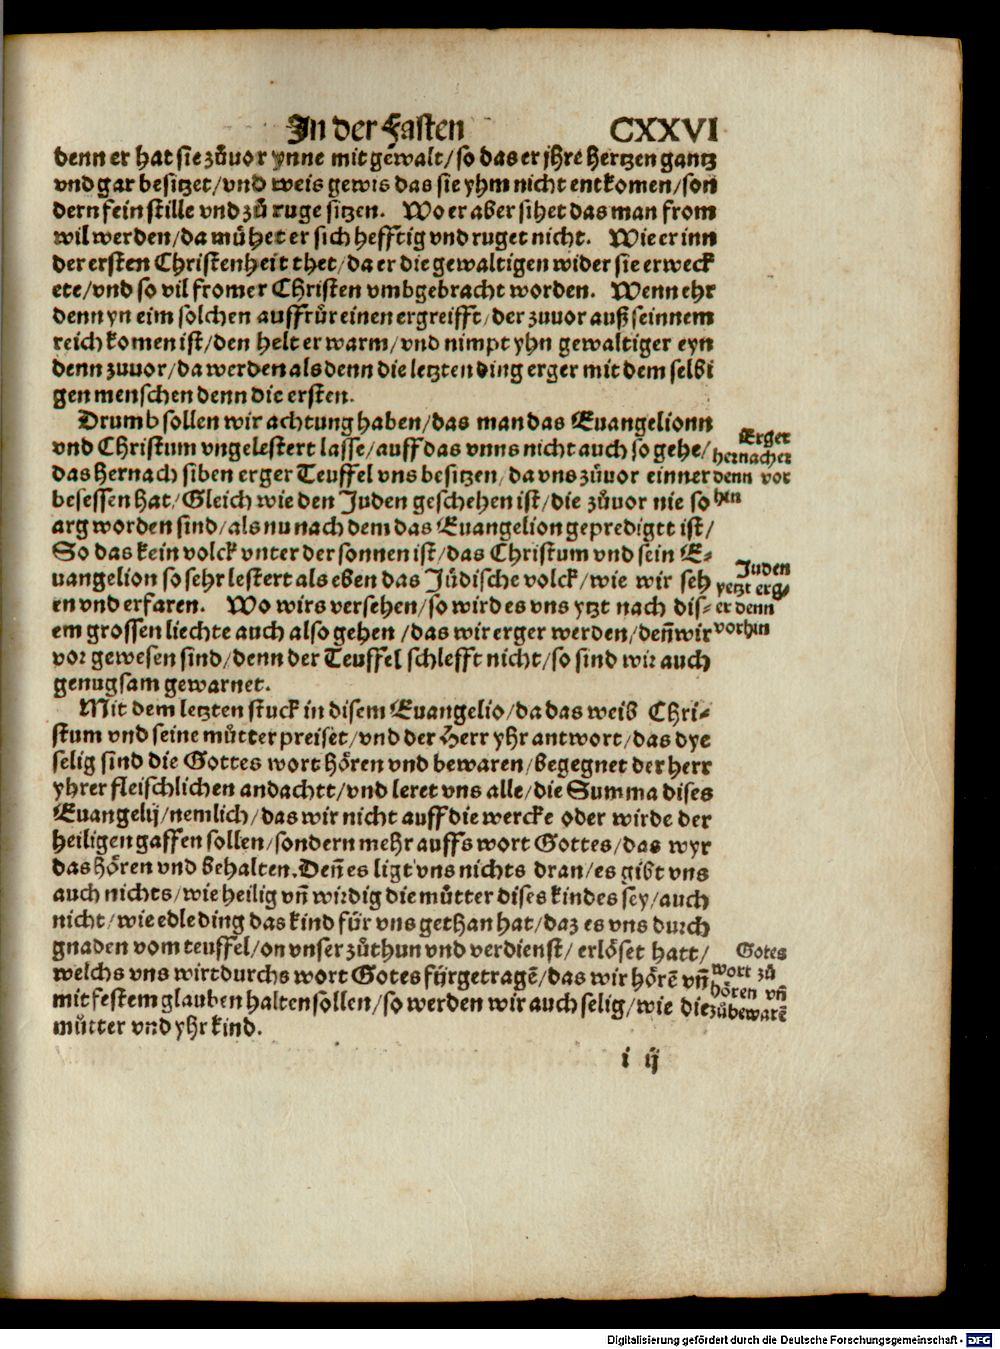 In der Fasten CXXVI
denn er hat sie zůuor ynne mit gewalt/ so das er jhre hertzen gantz
vnd gar besitzet/ vnd weis gewis das sie yhm nicht entkomen/ son
dern fein stille vnd zů ruge sitzen. Wo er aber sihet das man from
wil werden/ da můhet er sich hefftig vnd ruget nicht. Wie er inn
der ersten Christenheit thet/ da er die gewaltigen wider sie erweck
ete/ vnd so vil fromer Christen vmbgebracht worden. Wenn ehr
denn yn eim solchen auffrůr einen ergreifft/ der zuuor auß seinnem
reich komen ist/ den helt er warm/ vnd nimpt yhn gewaltiger eyn
denn zuuor/ da werden als denn die letzten ding erger mit dem selbi
gen menschen denn die ersten.
Drumb sollen wir achtung haben/ das man das Euangelionn
vnd Christum vngelestert lasse/ auff das vnns nicht auch so gehe/
das hernach siben erger Teuffel vns besitzen/ da vns zůuor einner
besessen hat/ Gleich wie den Juden geschehen ist/ die zůuor nie so
arg worden sind/ als nu nach dem das Euangelion gepredigtt ist/
So das kein volck vnter der sonnen ist/ das Christum vnd sein E⸗
uangelion so sehr lestert als eben das Jůdische volck/ wie wir seh
en vnd erfaren. Wo wirs versehen/ so wird es vns ytzt nach dis⸗
em grossen liechte auch also gehen/ das wir erger werden/ deñ wir
vor gewesen sind/ denn der Teuffel schlefft nicht/ so sind wir auch
genugsam gewarnet.
Mit dem letzten stuck in disem Euangelio/ da das weib Chri⸗
stum vnd seine můtter preiset/ vnd der Herr yhr antwort/ das dye
selig sind die Gottes wort hören vnd bewaren/ begegnet der herr
yhrer fleischlichen andachtt/ vnd leret vns alle/ die Summa dises
Euangelij/ nemlich/ das wir nicht auff die wercke oder wirde der
heiligen gaffen sollen/ sondern mehr auffs wort Gottes/ das wyr
das hören vnd behalten. Deñ es ligt vns nichts dran/ es gibt vns
auch nichts/ wie heilig vñ wirdig die můtter dises kindes sey/ auch
nicht/ wie edle ding das kind für vns gethan hat/ daz es vns durch
gnaden vom teuffel/ on vnser zůthun vnd verdienst/ erlöset hatt/
welchs vns wirt durchs wort Gotes fürgetragē/ das wir hörē vñ
mit festem glauben halten sollen/ so werden wir auch selig/ wie die
můtter vnd yhr kind.
Erger
hernacher
denn vor
hin
Juden
yetzt erg⸗
er denn
vorhin
Gotes
wort zů
hören vñ
zůbewarē
i ij
Digitalisierung gefördert durch die Deutsche Forschungsgemeinschaft - DFG